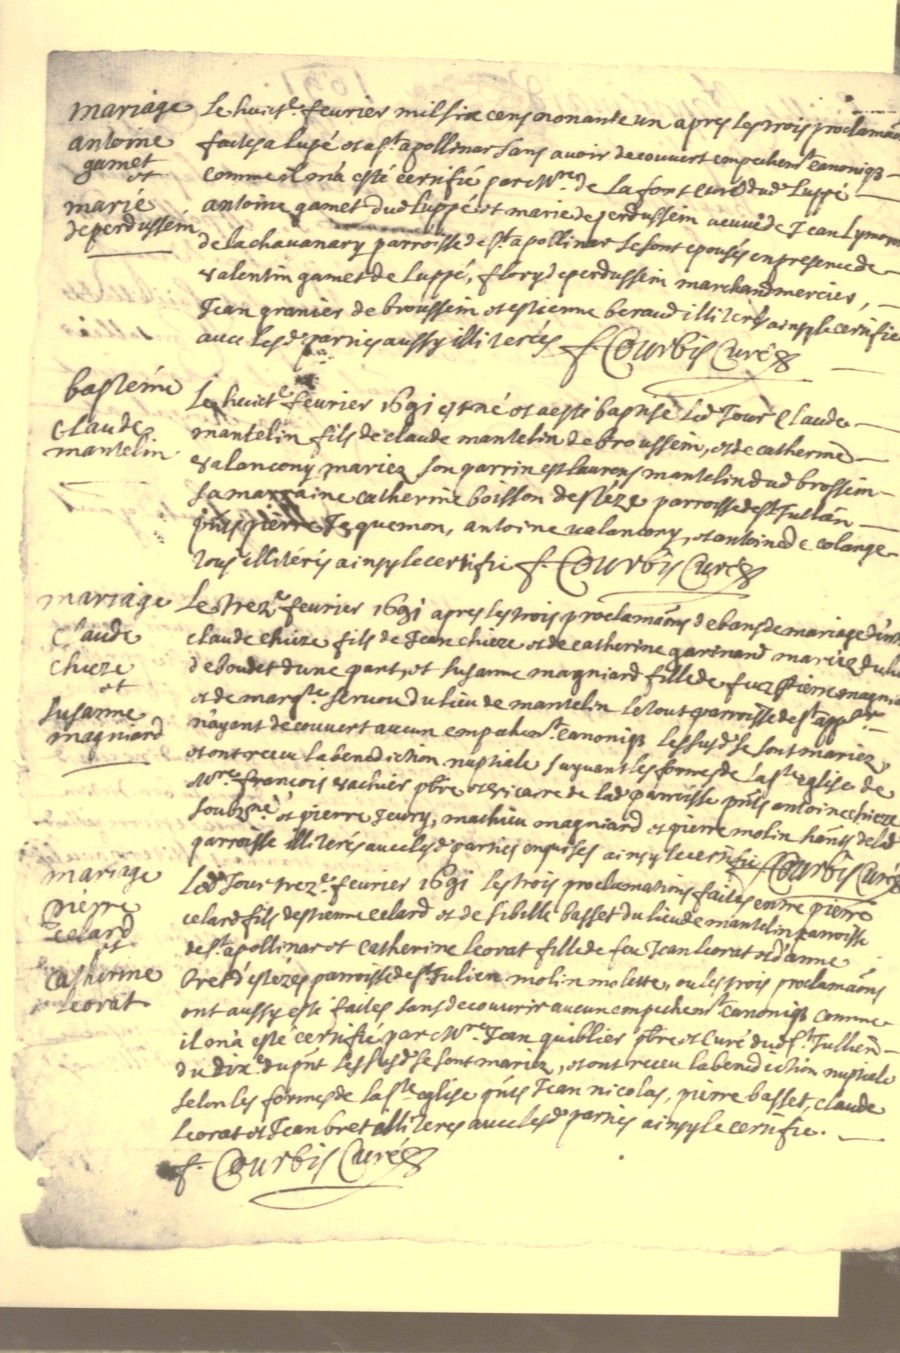 mariage
antoine
gamet
et
marie
deperdussein
Le huict.e feurier mil six cens nonante un apres les trois proclamaõns
faites a lupé et a s.t apollinar sans auoir decouuert empechem.t canoniq
comme il on a esté certifié par m.re de la font curé dud luppé
antoine gamet dud luppé et marie de perdussein veuue de Jean Lymonn
de lachauanary parroisse de s.t apollinar se sont epousés en presence de
valentin gamet de luppé, flory deperdussein marchand mercier,
Jean granier de broussein et estienne beraud illiterés ainsy le certifie
auec les d. parties aussy illiterées f. Courbis Curé
bapteme
claude
mantelin
Le huict.e feurier 1691 est né et a esté baptisé led Jour Claude
mantelin fils de claude mantelin de broussein, et de catherine
valancony mariez son parrin est laurens mantelin dud brossein
sa marraine catherine boisson desteze parroisse de s.t Jullian
pñts pierre Jequemon, antoine valancony, et antoine de colange
tous illitérés ainsy le certifie f. Courbis Curé
mariage
Claude
chieze
et
susanne
magniard
Le trez.e feurier 1691 apres les trois proclamaõns de bans de mariage d'entre
claude chieze fils de Jean chieze et de catherine garinand mariez du lieu
de boudet dune part, et susanne magniard fille de feuz pierre magniard
et de marg.te seruou du lieu de mantelin le tout parroisse de s.t app.ar
n'ayant decouuert aucun empahem.t canoniq les susd. se sont mariez,
et ont receu la benediction nuptiale suyuant les formes de la s.te eglise de
m.re francois vachier pbre et vicaire de lad parroisse pñts antoine chieze
soubzné et pierre Jeury, mathieu magniard et pierre molin hãnts de lad
parroisse illiterés auec les d. parties enquises ainsy le certifie f. Courbis Curé
mariage
pierre
celard
et
Catherine
leorat
Led Jour trez.e feurier 1691 les trois proclamations faites entre pierre
celard fils destienne celard et de sibelle basset du lieu de mantelin parroisse
de s.t apollinar et Catherine leorat fille de feu Jean leorat et d'anne
bret d'estézes parroisse de s.t Julien molin molette, ou les trois proclamaõns
ont aussy esté faites sans decouurir aucun empechem.t canoniq comme
il on a esté certifié par m.re Jean quiblier pbre et Curé dud s.t Jullien
du dix.e du pñt les susd. se sont mariez, et ont receu la benediction nuptiale
selon les formes de la s.te eglise pñts Jean nicolas, pierre basset, claude
leorat et Jean bret illiteres auec les d. parties ainsy le certifie.
f. Courbis Curé